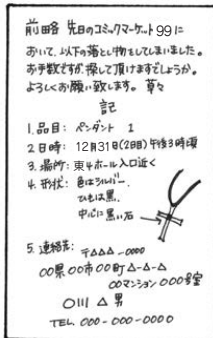 前略 先日のコミックマーケット99に
おいて、以下の落とし物をしてしまいました。
お手数ですが、探して頂けますでしょうか。
よろしくお願い致します。 草々
記
1. 品目: ペンダント 1
2. 日時: 12月31日(2日目)午後3時頃
3. 場所: 東4ホール入口近く
4. 形状: 色はシルバー.
ひもは黒.
中心に黒い石
5. 連絡先: 〒△△△-0000
○○県○○市○○町△-△-△
○○マンション 000号室
○川 △男
TEL 000-000-0000